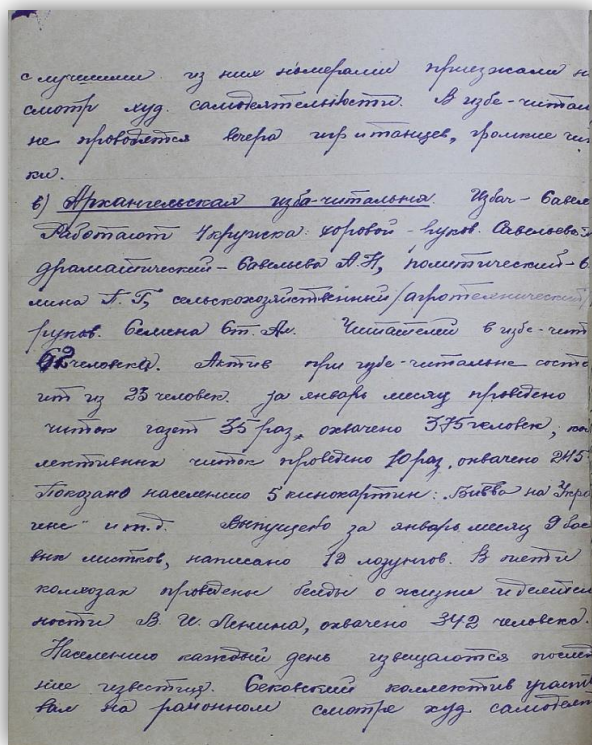 с лучшими из них номерами приезжали н
смотр худ. самодеятельности. В избе-читал
не проводятся вечера игр и танцев, громкие чит
ки.
в) Архангельская изба-читальня. Избач - Савель
Работают 4 кружка: хоровой - руков. Савельева
драматический - Савельева А.Н, политический - С
мина Г. Г, сельскохозяйственный /агротехнический/
руков. Семина Ст. Ал. Читателей в избе-чит
62 человека. Актив при избе-читальне состо
ит из 23 человек. За январь месяц проведено
читок газет 35 раз, охвачено 375 человек, кол
лективных читок проведено 10 раз, охвачено 245
Показано населению 5 кинокартин: "Битва на Укра
ине" и т.д. Выпущено за январь месяц 9 бое
вых листков, написано 12 лозунгов. В пяти
колхозах проведены беседы о жизни и деятел
ности В. И. Ленина, охвачено 342 человека.
Населению каждый день извещаются послед
ние известия. Бековский коллектив участв
вал на районном смотре худ. самодеят